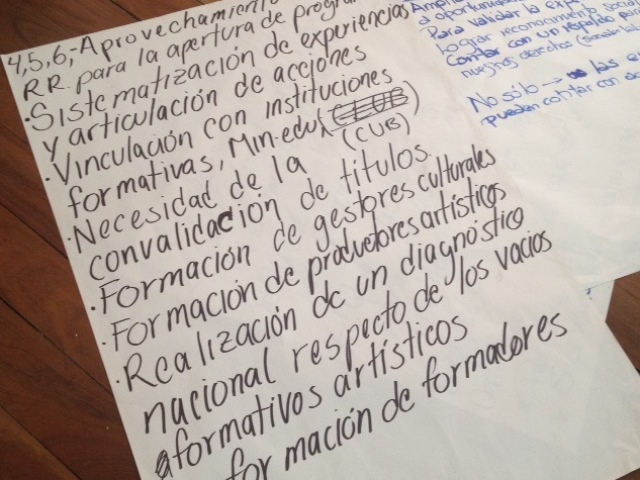 4,5,6,- Aprovechamiento
R.R. para la apertura de progra
· Sistematización de experiencias
y articulación de acciones
· Vinculación con instituciones
formativas, Min.edu, (CLUB)
(CUB)
· Necesidad de la
convalidación de titulos.
· Formación de gestores culturales
· Formación de productores artísticos
· Realización de un diagnóstico
nacional respecto de los vacios
formativos artísticos
formación de formadores
Ampli
a oportunida
Para validar la exp
Lograr reconocimiento social
Contar con un respaldo
nuestros derechos
No sólo → las e
puedan cotizar con